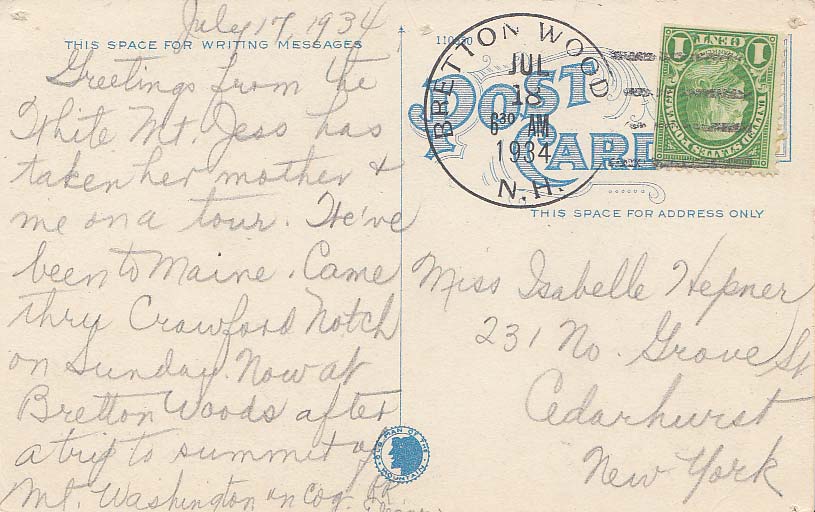 July 17, 1934
THIS SPACE FOR WRITING MESSAGES
Greetings from the
White Mt. Jess has
taken her mother &
me on a tour. We've
been to Maine. Came
thru Crawford Notch
on Sunday. Now at
Bretton Woods after
a trip to summit of
Mt. Washington on Cog. RR
OLD MAN OF THE
MOUNTAIN
POST
CARD
BRETTON WOOD
JUL
18
8 30 AM
1934
N.H.
1 CENT 1
UNITED STATES POSTAGE
THIS SPACE FOR ADDRESS ONLY
Miss Isabelle Hepner
231 No. Grove St
Cedarhurst
New York